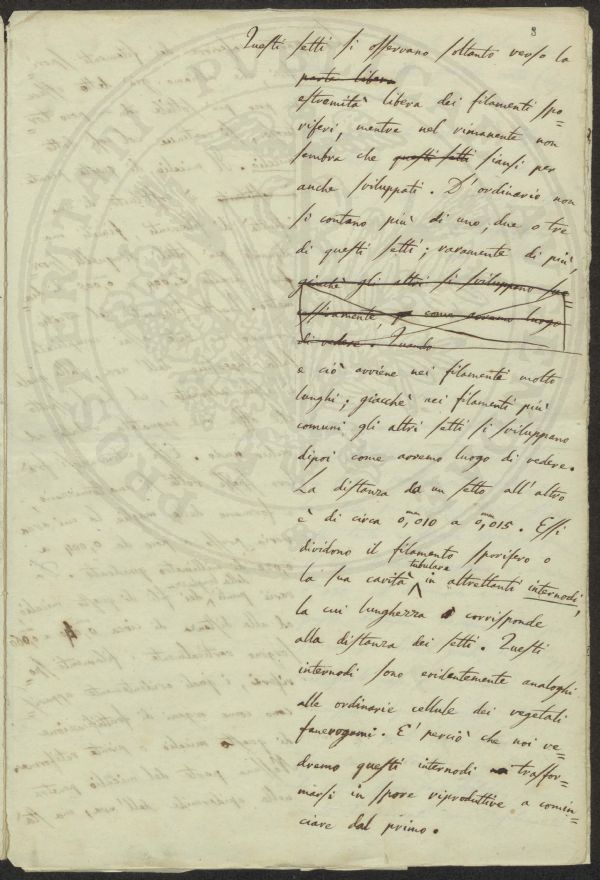 8
Questi setti si osservano soltanto verso la
parte libera
estremità libera dei filamenti spo=
riferi, mentre nel rimanente non
sembra che questi setti siansi per
anche sviluppati. D'ordinario non
si contano più di uno, due o tre
di questi setti; raramente di più,
giacchè gli altri si sviluppano suc
cessivamente, come avremo luogo
di vedere. Quando
e ciò avviene nei filamenti molto
lunghi; giacchè nei filamenti più
comuni gli altri setti si sviluppano
dipoi come avremo luogo di vedere.
La distanza da un setto all'altro
è di circa 0,mm010 a 0,mm015. Essi
dividono il filamento sporifero o
la sua cavità tubulare in altrettanti internodi,
la cui lunghezza corrisponde
alla distanza dei setti. Questi
internodi sono evidentemente analoghi
alle ordinarie cellule dei vegetali
fanerogami. E' perciò che noi ve=
dremo questi internodi trasfor=
marsi in spore riproduttive a comin=
ciare dal primo.